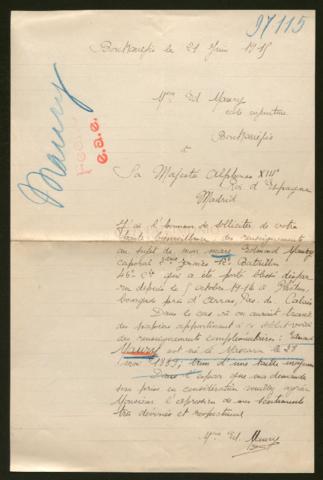 97115
Maury
e.a.e.
Bou Hanéfis le 21 Juin 1915
Mme Ed Maury
Bou Hanéfis
à
Sa Majesté Alphonse XIII
Roi d'Espagne
Madrid
J'ai l'honneur de solliciter de votre
haute bienveillance des renseignements
au sujet de mon mari Edmond Maury
caporal Bataillon
45e Cie qui a été porté blessé dispa-
ru depuis le 5 octobre 1914 à
près d'Arras, Pas de Calais
Dans le cas où on aurait trouvé
des papiers appartenant à
des renseignements complémentaires: Edmond
Maury est né à Mascara le 29
1889, d'une taille moyenne
Dans l'espoir que ma demande
sera prise en considération veuillez agréer
Monsieur l'expression de mes sentiments
très dévoués et respectueux
Mme Ed Maury